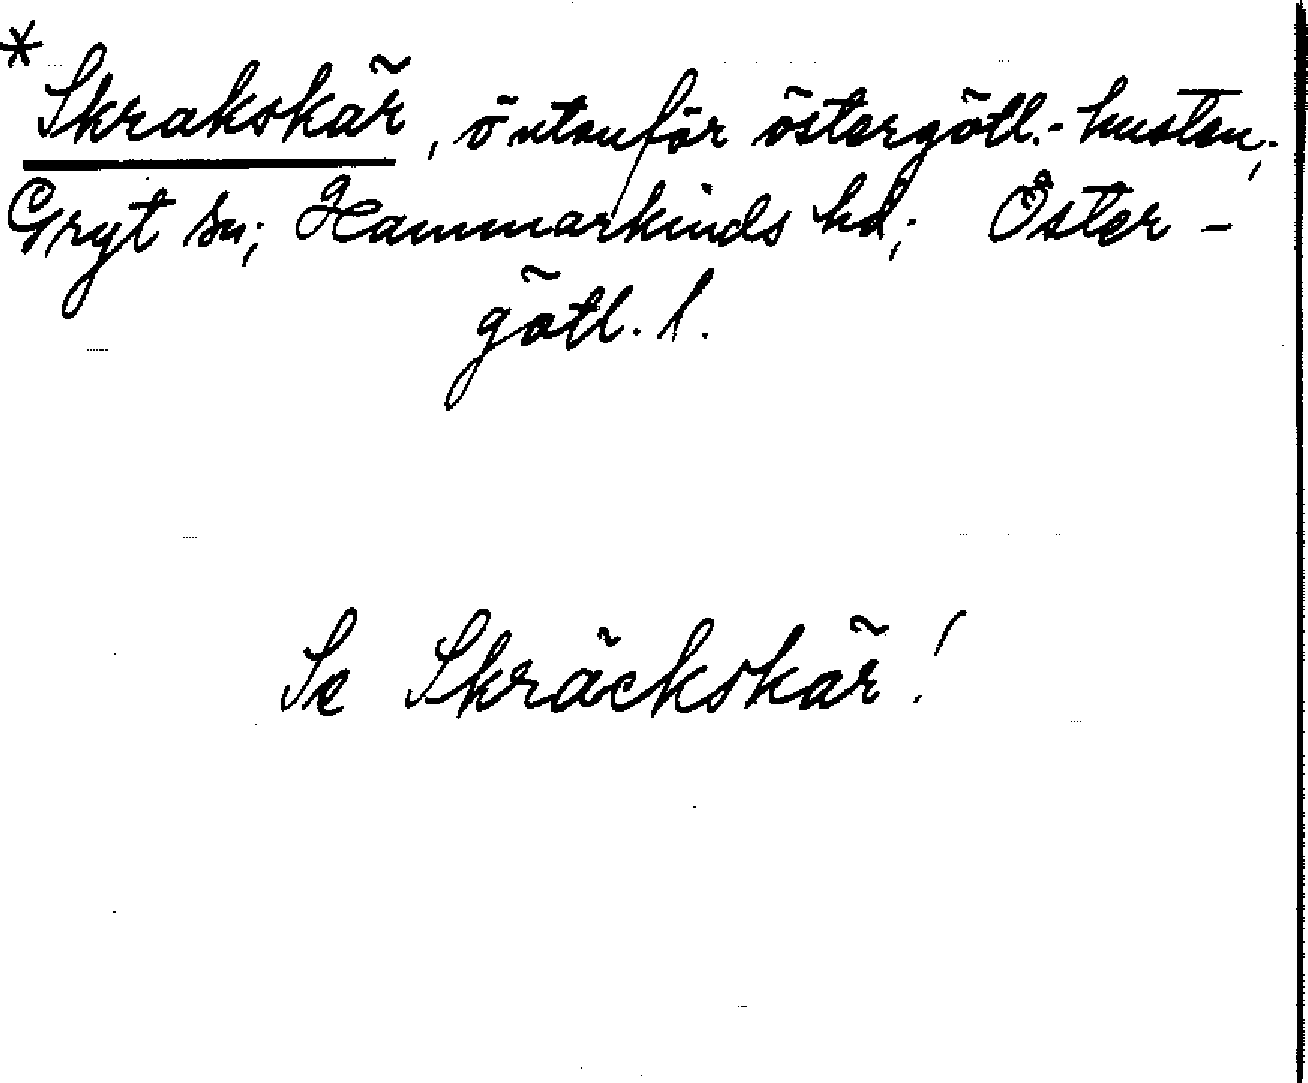 * Skrakskär, ö utanför östergötl.-kusten;
Gryt sn; Hammarkinds hd; Öster-
götl. l.
Se Skräckskär!